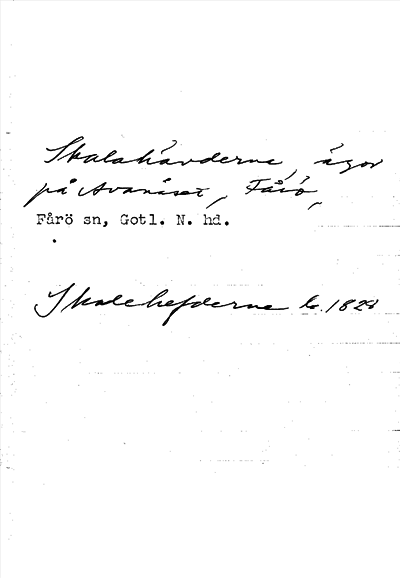 Skalahävderne, ägor
på Avanäset, Fårö,
Fårö sn, Gotl. N. hd.
Skalehefderne k. 1828